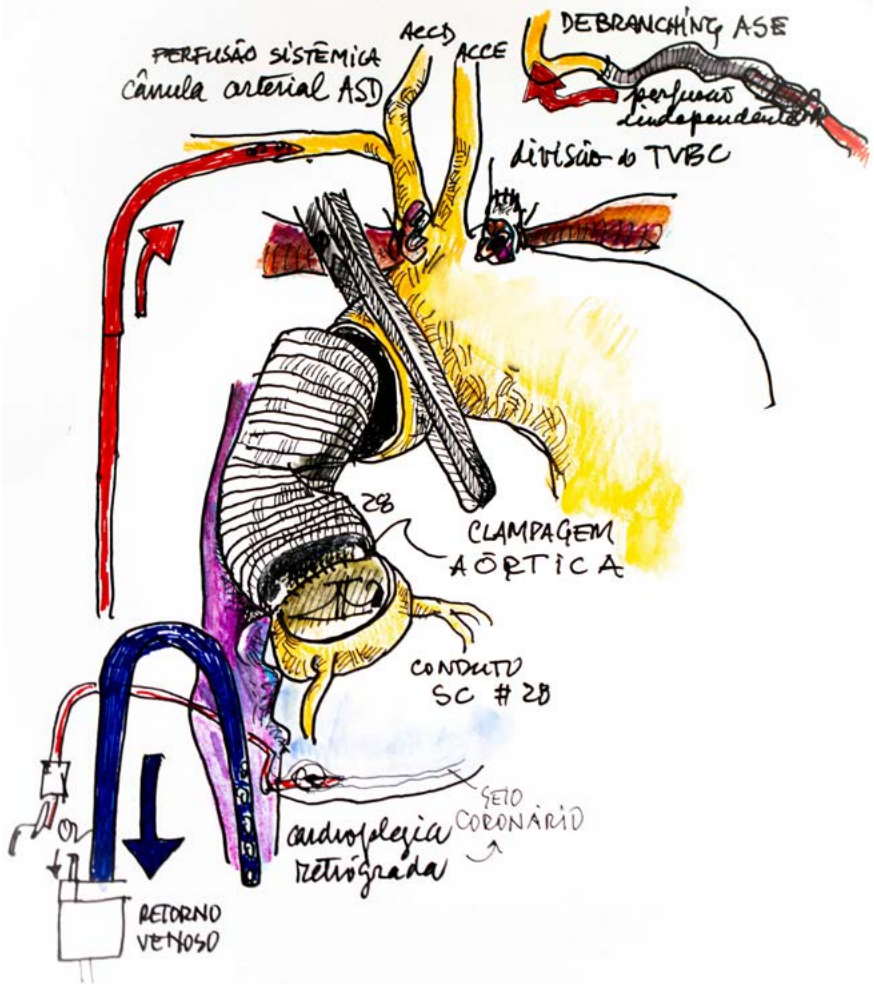 PERFUSÃO SISTÊMICA
cânula arterial ASD
ACCD
ACCE
DEBRANCHING ASE
perfusão
independente
divisão do TVBC
28
CLAMPAGEM
AÓRTICA
CONDUTO
SC # 28
SEIO
CORONÁRIO
cardioplegia
retrógrada
RETORNO
VENOSO